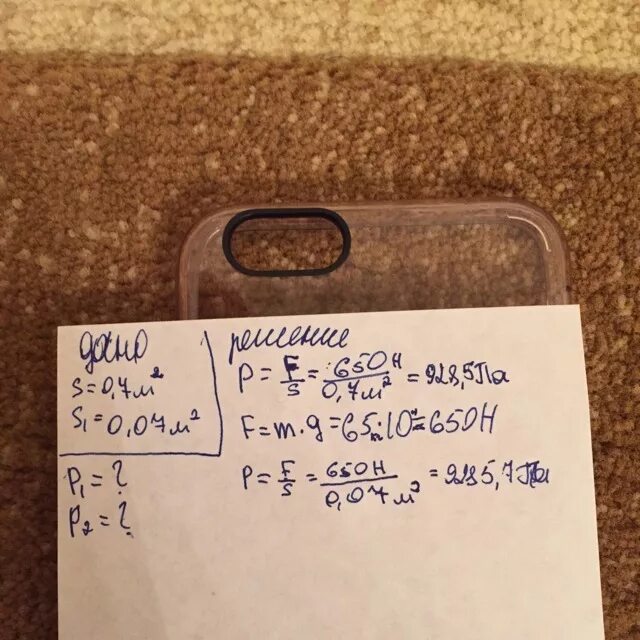 дано
S = 0,7 м²
S₁ = 0,07 м²
P₁ = ?
P₂ = ?
решение
P = F/S = 650 Н / 0,7 м² = 928,5 Па
F = m · g = 65 · 10 = 650 Н
P = F/S = 650 Н / 0,07 м² = 9285,7 Па